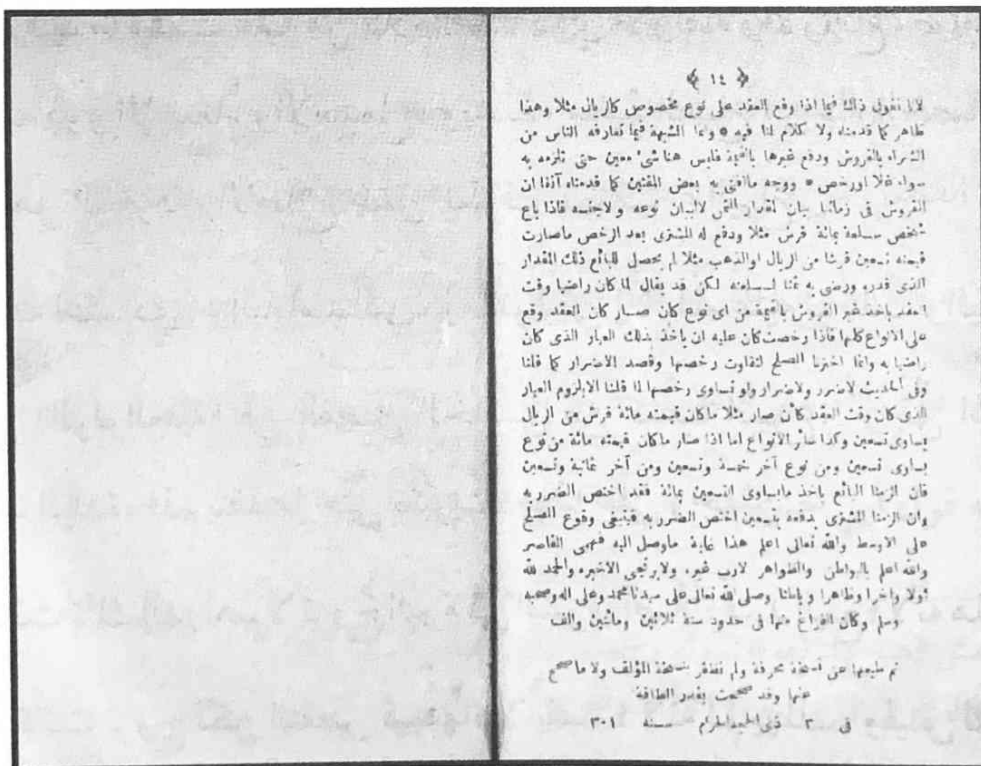 ﴿ ١٤ ﴾
لانا نقول ذلك فيما اذا وقع العقد على نوع مخصوص كالريال مثلا وهذا
ظاهر كما قدمناه ولا كلام لنا فيه * وانما الشبهة فيما تعارفه الناس من
الشراء بالقروش ودفع غيرها بالقيمة فليس هنا شئ معين حتى تلزمه به
سواء غلا اورخص * ووجه ماافتى به بعض المفتين كما قدمناه آنفا ان
القروش فى زماننا بيان لمقدار الثمن لالبيان نوعه ولاجنسه فاذا باع
شخص سلعة بمائة قرش مثلا ودفع له المشترى بعد الرخص ماصارت
قيمته تسعين قرشا من الريال اوالذهب مثلا لم يحصل للبائع ذلك المقدار
الذى قدره ورضى به ثمنا لسلعته لكن قد يقال لما كان راضيا وقت
العقد باخذ غير القروش بالقيمة من اى نوع كان صار كان العقد وقع
على الانواع كلها فاذا رخصت كان عليه ان يأخذ بذلك العيار الذى كان
راضيا به وانما اخترنا الصلح لتفاوت رخصها وقصد الاضرار كما قلنا
وفى الحديث لاضرر ولاضرار ولو تساوى رخصها لما قلنا الابلزوم العيار
الذى كان وقت العقد كأن صار مثلا ماكان قيمته مائة قرش من الريال
يساوى تسعين وكذا سائر الانواع اما اذا صار ماكان قيمته مائة من نوع
يساوى تسعين ومن نوع آخر خمسة وتسعين ومن آخر ثمانية وتسعين
فان الزمنا البائع باخذ مايساوى التسعين بمائة فقد اختص الضرر به
وان الزمنا المشترى بدفعه بتسعين اختص الضرر به فينبغى وقوع الصلح
على الاوسط والله تعالى اعلم هذا غاية ماوصل اليه فهمى القاصر
والله اعلم بالبواطن والظواهر لارب غيره ولايرتجى الاخيره والحمد لله
اولا واخرا وظاهرا وباطنا وصلى الله تعالى على سيدنا محمد وعلى اله وصحبه
وسلم وكان الفراغ منها فى حدود سنة ثلاثين ومائتين والف
تم طبعها عن نسخة محرفة ولم نظفر بنسخة المؤلف ولا ما صحح
عنها وقد صححت بقدر الطاقة
فى ٣ سنة ٣٠١